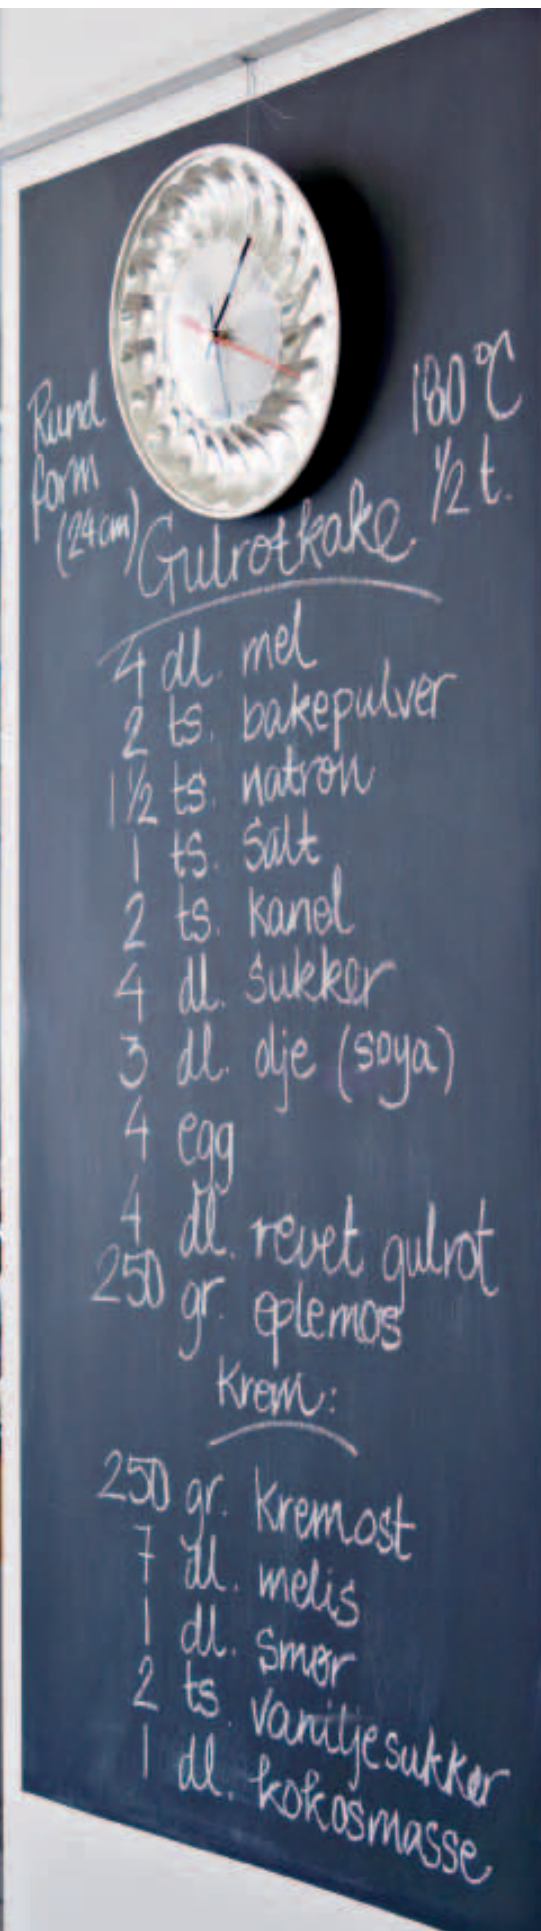 Rund
form
(24 cm)
180°C
1/2 t.
Gulrotkake
4 dl. mel
2 ts. bakepulver
1 1/2 ts. natron
1 ts. salt
2 ts. kanel
4 dl. sukker
3 dl. olje (soya)
4 egg
4 dl. revet gulrot
250 gr. eplemos
Krem:
250 gr. kremost
7 dl. melis
1 dl. smør
2 ts. vaniljesukker
1 dl. kokosmasse